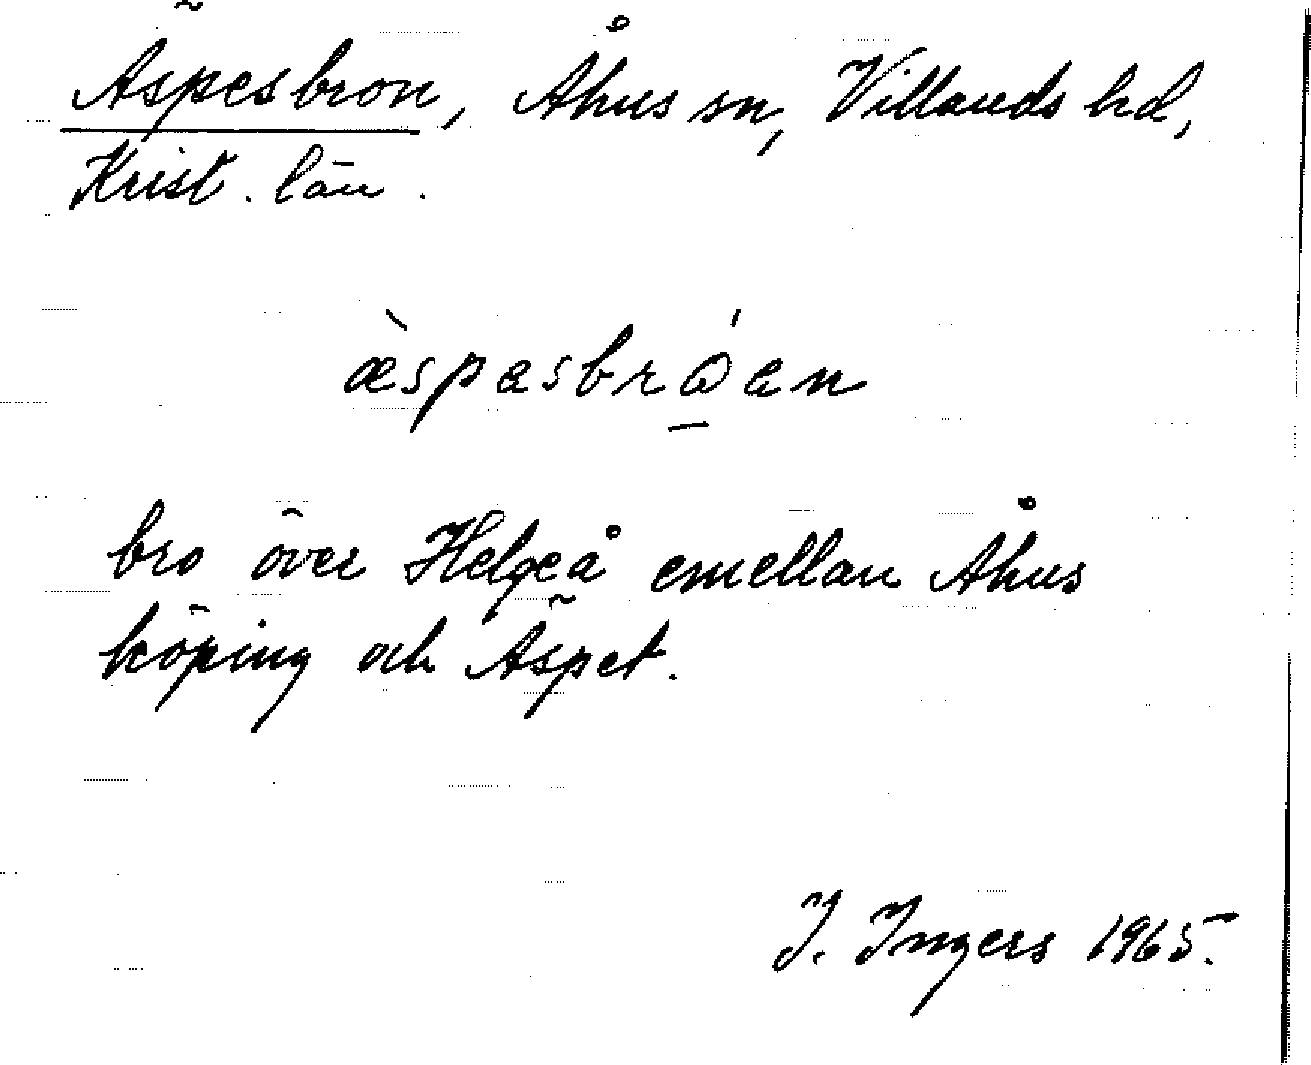 Äspesbron, Åhus sn, Villands hd,
Krist. län.
æ̀spasbrǿ̱an
bro över Helgeå emellan Åhus
köping och Äspet.
I. Ingers 1965.